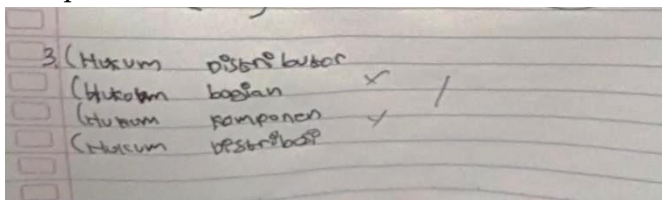 3. (Hukum Distributor
(Hukum bagian ×
(Hukum komponen ×
(Hukum Destribusi